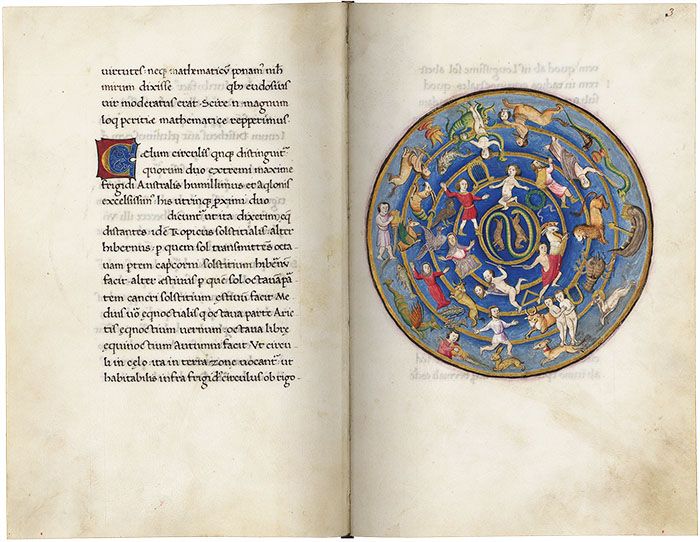 uirtutes neqʒ mathematicũ ponam nih
mirum dixisse qbʒ eudosius
uir moderatus erat. Scire n magnum
loq peritiæ mathematice repperimus.
Cælum circulis qnqʒ distinguit
quorum duo extremi maxime
frigidi Australis humillimus et aqlonis
excelsissim his utrinqʒ proximi duo
dicunt ut ita dixerim, eq
distantes idē Tropicus solstitialis: alter
hibernus p quem sol transmittēs octa
uam ptem capcorni solstitium hibēnū
facit alter estiuus p quē sol octauā pa
tem cancri solstitium estiuū facit Me
dius uō eqnoctialis q octaua parte Arie
tis eqnoctium uernum octaua libre
equinoctium autumni facit Vt circu
li in celo ita in terra zone uocant ut
habitabilis infra frigid circulus obrigo-
3